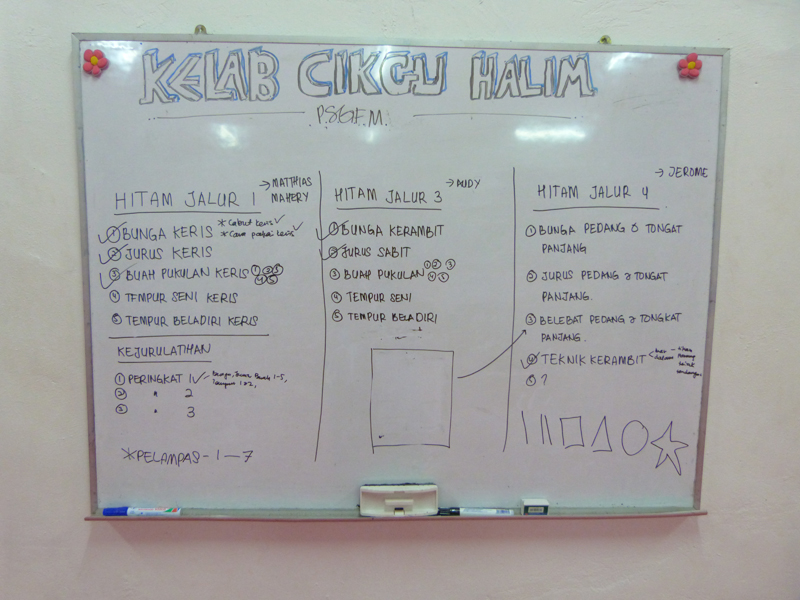 KELAB CIKGU HALIM
P.S.G.F.M.
HITAM JALUR 1
→ MATTHIAS
MAHERY
① BUNGA KERIS
* Cabut keris ✓
* Cara pakai keris ✓
② JURUS KERIS
③ BUAH PUKULAN KERIS ① ② ③
④ ⑤
④ TEMPUR SENI KERIS
⑤ TEMPUR BELADIRI KERIS
KEJURULATIHAN
① PERINGKAT 1 ✓
② " 2
③ " 3
*PELAMPAS - 1 — 7
HITAM JALUR 3
→ AUDY
① BUNGA KERAMBIT
② JURUS SABIT
③ BUAH PUKULAN ① ② ③
④ ⑤
④ TEMPUR SENI
⑤ TEMPUR BELADIRI
HITAM JALUR 4
→ JEROME
① BUNGA PEDANG & TONGAT
PANJANG
② JURUS PEDANG & TONGAT
PANJANG.
③ BELEBAT PEDANG & TONGKAT
PANJANG.
④ TEKNIK KERAMBIT
⑤ ?